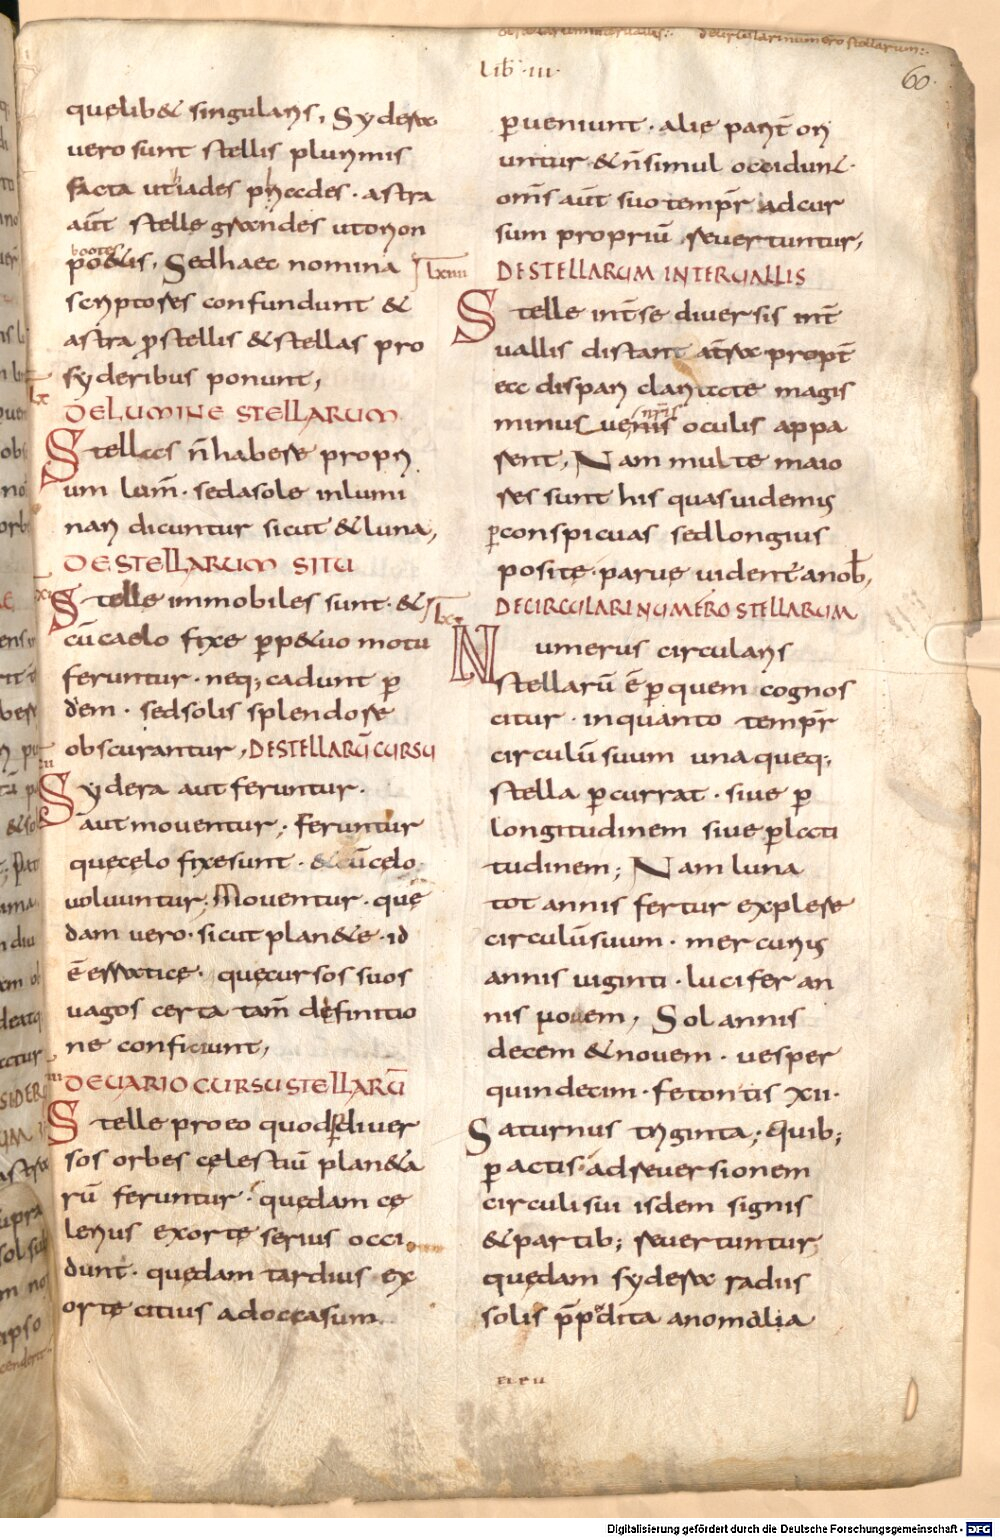 de stellarum intervallis:. de circulari numero stellarum:.
Lib̄ · iii ·
60·
quęlib& singularis, Sydera
vero sunt stellis plurimis
facta ut iades pliades · astra
aūt stellę grandes ut orion
bootes
po&is, Sed haec nomina
scriptores confundunt &
astra p̄ stellis & stellas pro
syderibus ponunt,
Lx
DE LUMINE STELLARUM
Stellas n̄ habere propri
um lum̄ · sed a sole inlumi
nari dicuntur sicut & luna,
DE STELLARUM SITU
Stelle inmobiles sunt · &
cū caelo fixę p̄p&uo motu
feruntur · neq; cadunt p̱
dem · sed solis splendore
obscurantur, DE STELLARŪ CURSU
Sydera aut feruntur ·
aut moventur; feruntur
quę cęlo fixę sunt · & cū cęlo
voluuntur; Moventur · quę
dam vero · sicut plan&ę · id
ē erraticę · quę cursos suos
vagos certa tam̄ definitio
ne conficiunt,
DE VARIO CURSU STELLARŪ
Stelle pro eo quod p̱ diver
sos orbes cęlestiū plan&a
rū feruntur · quędam ce
lerius exortę serius occi
dunt · quędam tardius ex
ortę citius ad occasum
p̱veniunt · alię parit̄ ori
untur & n̄ simul occidunt ·
om̄s aūt suo temp̄r ad cur
sum propriū revertuntur,
Lxiiii
DE STELLARUM INTERUALLIS
Stelle int̄ se diversis int̄
vallis distant a terra propt̄
ea dispari claritate magis
nr̄is
minusue nis oculis appa
rent, Nam multę maio
res sunt his quas videmus
p̱conspicuas sed longius
positę · parvę vident̄ a nob̄,
Lxv
DE CIRCULARI NUMERO STELLARUM
Numerus circularis
stellarū ē p̱ quem cognos
citur · in quanto temp̄r
circulū suum una queq;
stella p̱currat · sive p̱
longitudinem sive p̱ lati
tudinem; Nam luna
tot annis fertur explere
circulū suum · mercurius
annis viginti · lucifer an
nis novem, Sol annis
decem & novem · vesper
quindecim · fetontis xii ·
Saturnus triginta; Quib;
p̱actis · ad reversionem
circuli sui isdem signis
& partib; revertuntur
quędam sydera radiis
solis p̄pedita anomala
Digitalisierung gefördert durch die Deutsche Forschungsgemeinschaft - DFG